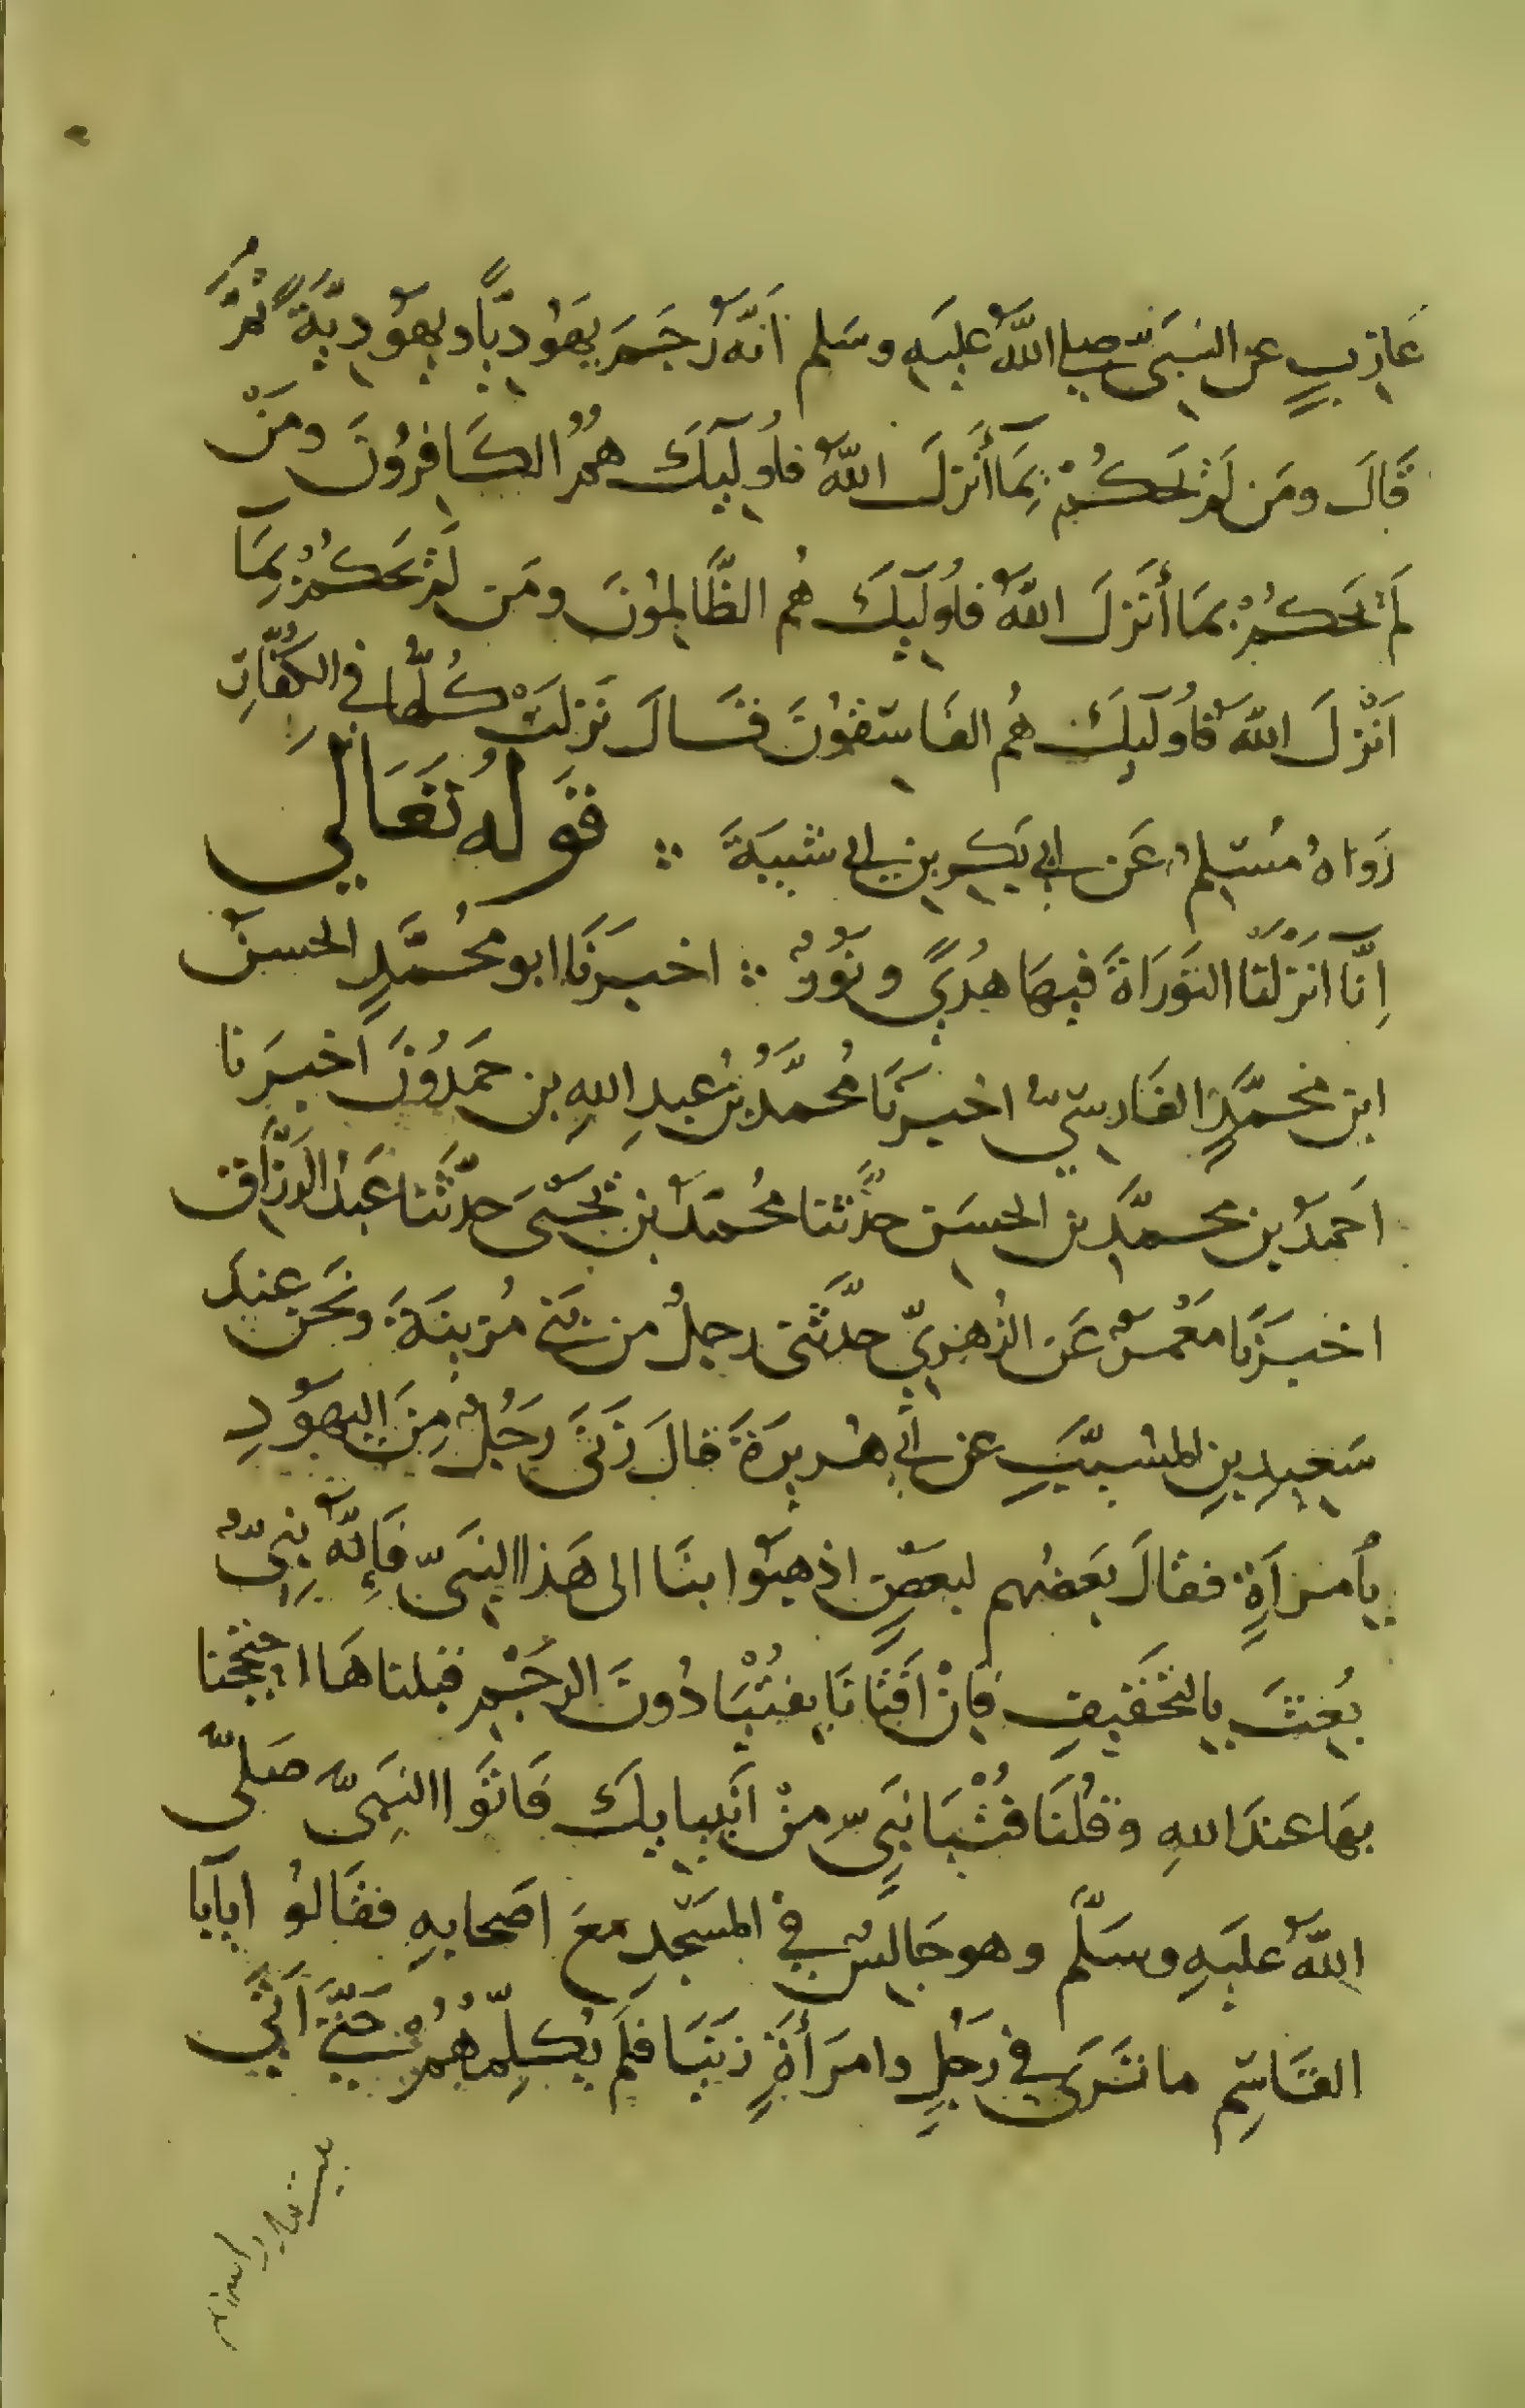 عَازِبٍ عن النبيّ صلى اللهُ عليهِ وسَلم أنّهُ رَجَمَ يَهُوديًّا ويهوديّةً ثمَّ
قَالَ ومَن لَمْ يَحكُمْ بِمَا أَنْزَلَ اللهُ فأُولَيِكَ هُمُ الكَافِرُونَ ومَنْ
لَمْ يَحكُمْ بمَا أَنَزلَ اللهُ فأُولَيِكَ هُم الظَّالِمُونَ ومَن لَمْ يَحكُمْ بِمَآ
أَنْزلَ اللهُ فأُولَيِكَ هُم الفَاسِقُونَ قَالَ نَزلَتْ كُلُّها في الكُفَّارِ
رَوَاهُ مُسْلِمٌ عَن أبي بَكرِ بن أبي شَيبَةَ قَولهُ تَعَالَى
إِنَّا أنْزَلْنَا التَورَاةَ فيهَا هُدًى ونُورٌ اخبَرنَا ابو محُمَّدٍ الحسنُ
ابن محُمَّدٍ الفَارسيّ اخبَرنَا مُحمَّدُ بنُ عبدِ اللهِ بن حَمدُونَ أخبَرنا
أحمَدُ بن محمَّدِ بن الحسَن حدَّثنا مُحمَّدُ بن يَحيىَ حدّثنا عَبدُ الرَزَّاقِ
اخبَرَنَا مَعْمَرٌ عَن الزُهرِيّ حدَّثَنى رجلٌ من مُزينَةَ ونَحن عِندَ
سَعيدِ بنِ المُسيّبِ عن أبي هُريرَةَ قالَ زَنَى رَجُلٌ مِنَ اليهودِ
بأمرأَةٍ فقالَ بَعضُهم لبعضٍ اذهبُوا بنَا الى هَذا النبيّ فَإنّهُ نبيٌّ
بُعِثَ بالتَخفيفِ فإنْ أفتَانَا بفُتْيَا دُونَ الرجْمِ قبلناهَا احتججنا
بهَا عندَ اللهِ وقُلنَا فُتْيَا نَبيٍّ مِنْ أنبيايكَ فَاتَوا النبيَّ صَلّى
اللهُ عليهِ وسَلَّم وهو جَالسٌ في المسْجدِ معَ اصَحابهِ فقَالوُا يابا
القَاسِمِ ما تَرَى في رَجُلٍ وامرَأَةٍ زَنَيَا فلَم يُكلِّمْهُمْ حَتَّى أتَى